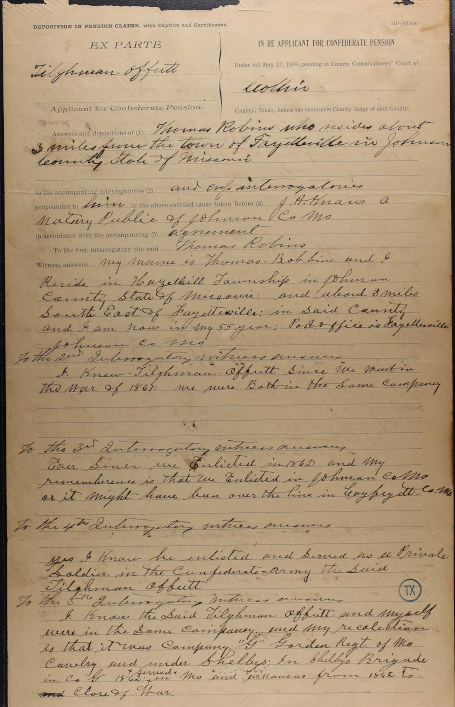 DEPOSITION IN PENSION CLAIMS, with Caption and Certificates.
EX PARTE
Tilghman Offutt
Applicant for Confederate Pension.
IN RE APPLICANT FOR CONFEDERATE PENSION
Under Act May 12, 1899, pending in County Commissioners' Court of
Collin
County, Texas, before the Honorable County Judge of said County.
Answers and depositions of (1) Thomas Robins who resides about
3 miles from the town of Fayetteville in Johnson
County State of Missouri
to the accompanying interrogatories (2) and crf. interrogatories
propounded to him in the above entitled cause taken before (3) J. H. Knaus a
Notary Public of Johnson Co Mo
in accordance with the accompanying (5) agreement
To the first interrogatory the said Thomas Robins
Witness, answers: My name is Thomas Robbins and I
Reside in Hazelhill Township in Johnson
County State of Missouri and about 3 miles
South East of Fayetteville: in Said County
and I am now in my 55 year: Post office is Fayetteville
Johnson Co Mo
To the 2nd Interrogatory witness answers
I Knew Tilghman Offutt Since We went in
the War of 1861 we were Both in the Same Company
To the 3rd Interrogatory witness answers
Ever Since we Enlisted in 1862 and My
remembrance is that we Enlisted in Johnson Co Mo
or it Might have been over the line in Layfayett Co. Mo
To the 4th Interrogatory witness answers
yes I Know he enlisted and Served as a Private
Soldier in the Confederate Army the Said
Tilghman Offutt
To the 5th Interrogatory witness answers
I Know the Said Tilghman Offutt and myself
were in the Same Company and my recolection
is that it was Company "G" Gorden Regt. of Mo
Cavelry and under Shelbys: In Shelbys Brigade
in Co G 1862 Served in Mo and in Arkansas from 1862 to
Close of War.
TX